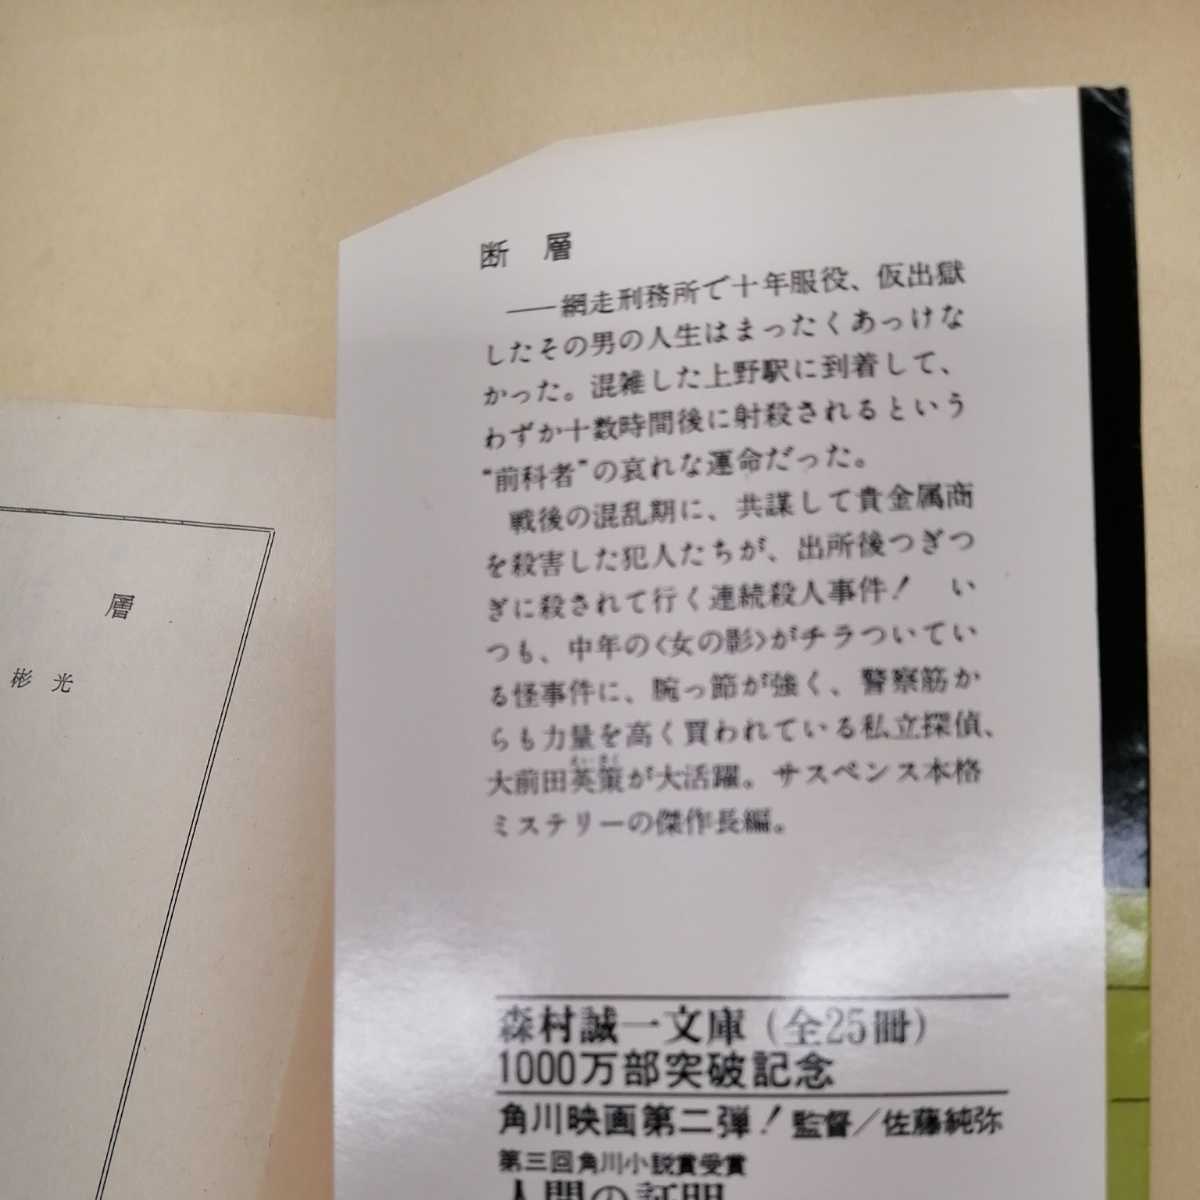 層
彬光
断層
――網走刑務所で十年服役、仮出獄
したその男の人生はまったくあっけな
かった。混雑した上野駅に到着して、
わずか十数時間後に射殺されるという
“前科者”の哀れな運命だった。
戦後の混乱期に、共謀して貴金属商
を殺害した犯人たちが、出所後つぎつ
ぎに殺されて行く連続殺人事件！　い
つも、中年の〈女の影〉がチラついてい
る怪事件に、腕っ節が強く、警察筋か
らも力量を高く買われている私立探偵、
大前田英策が大活躍。サスペンス本格
ミステリーの傑作長編。
森村誠一文庫（全25冊）
1000万部突破記念
角川映画第二弾！監督／佐藤純弥
第三回角川小説賞受賞
人間の証明